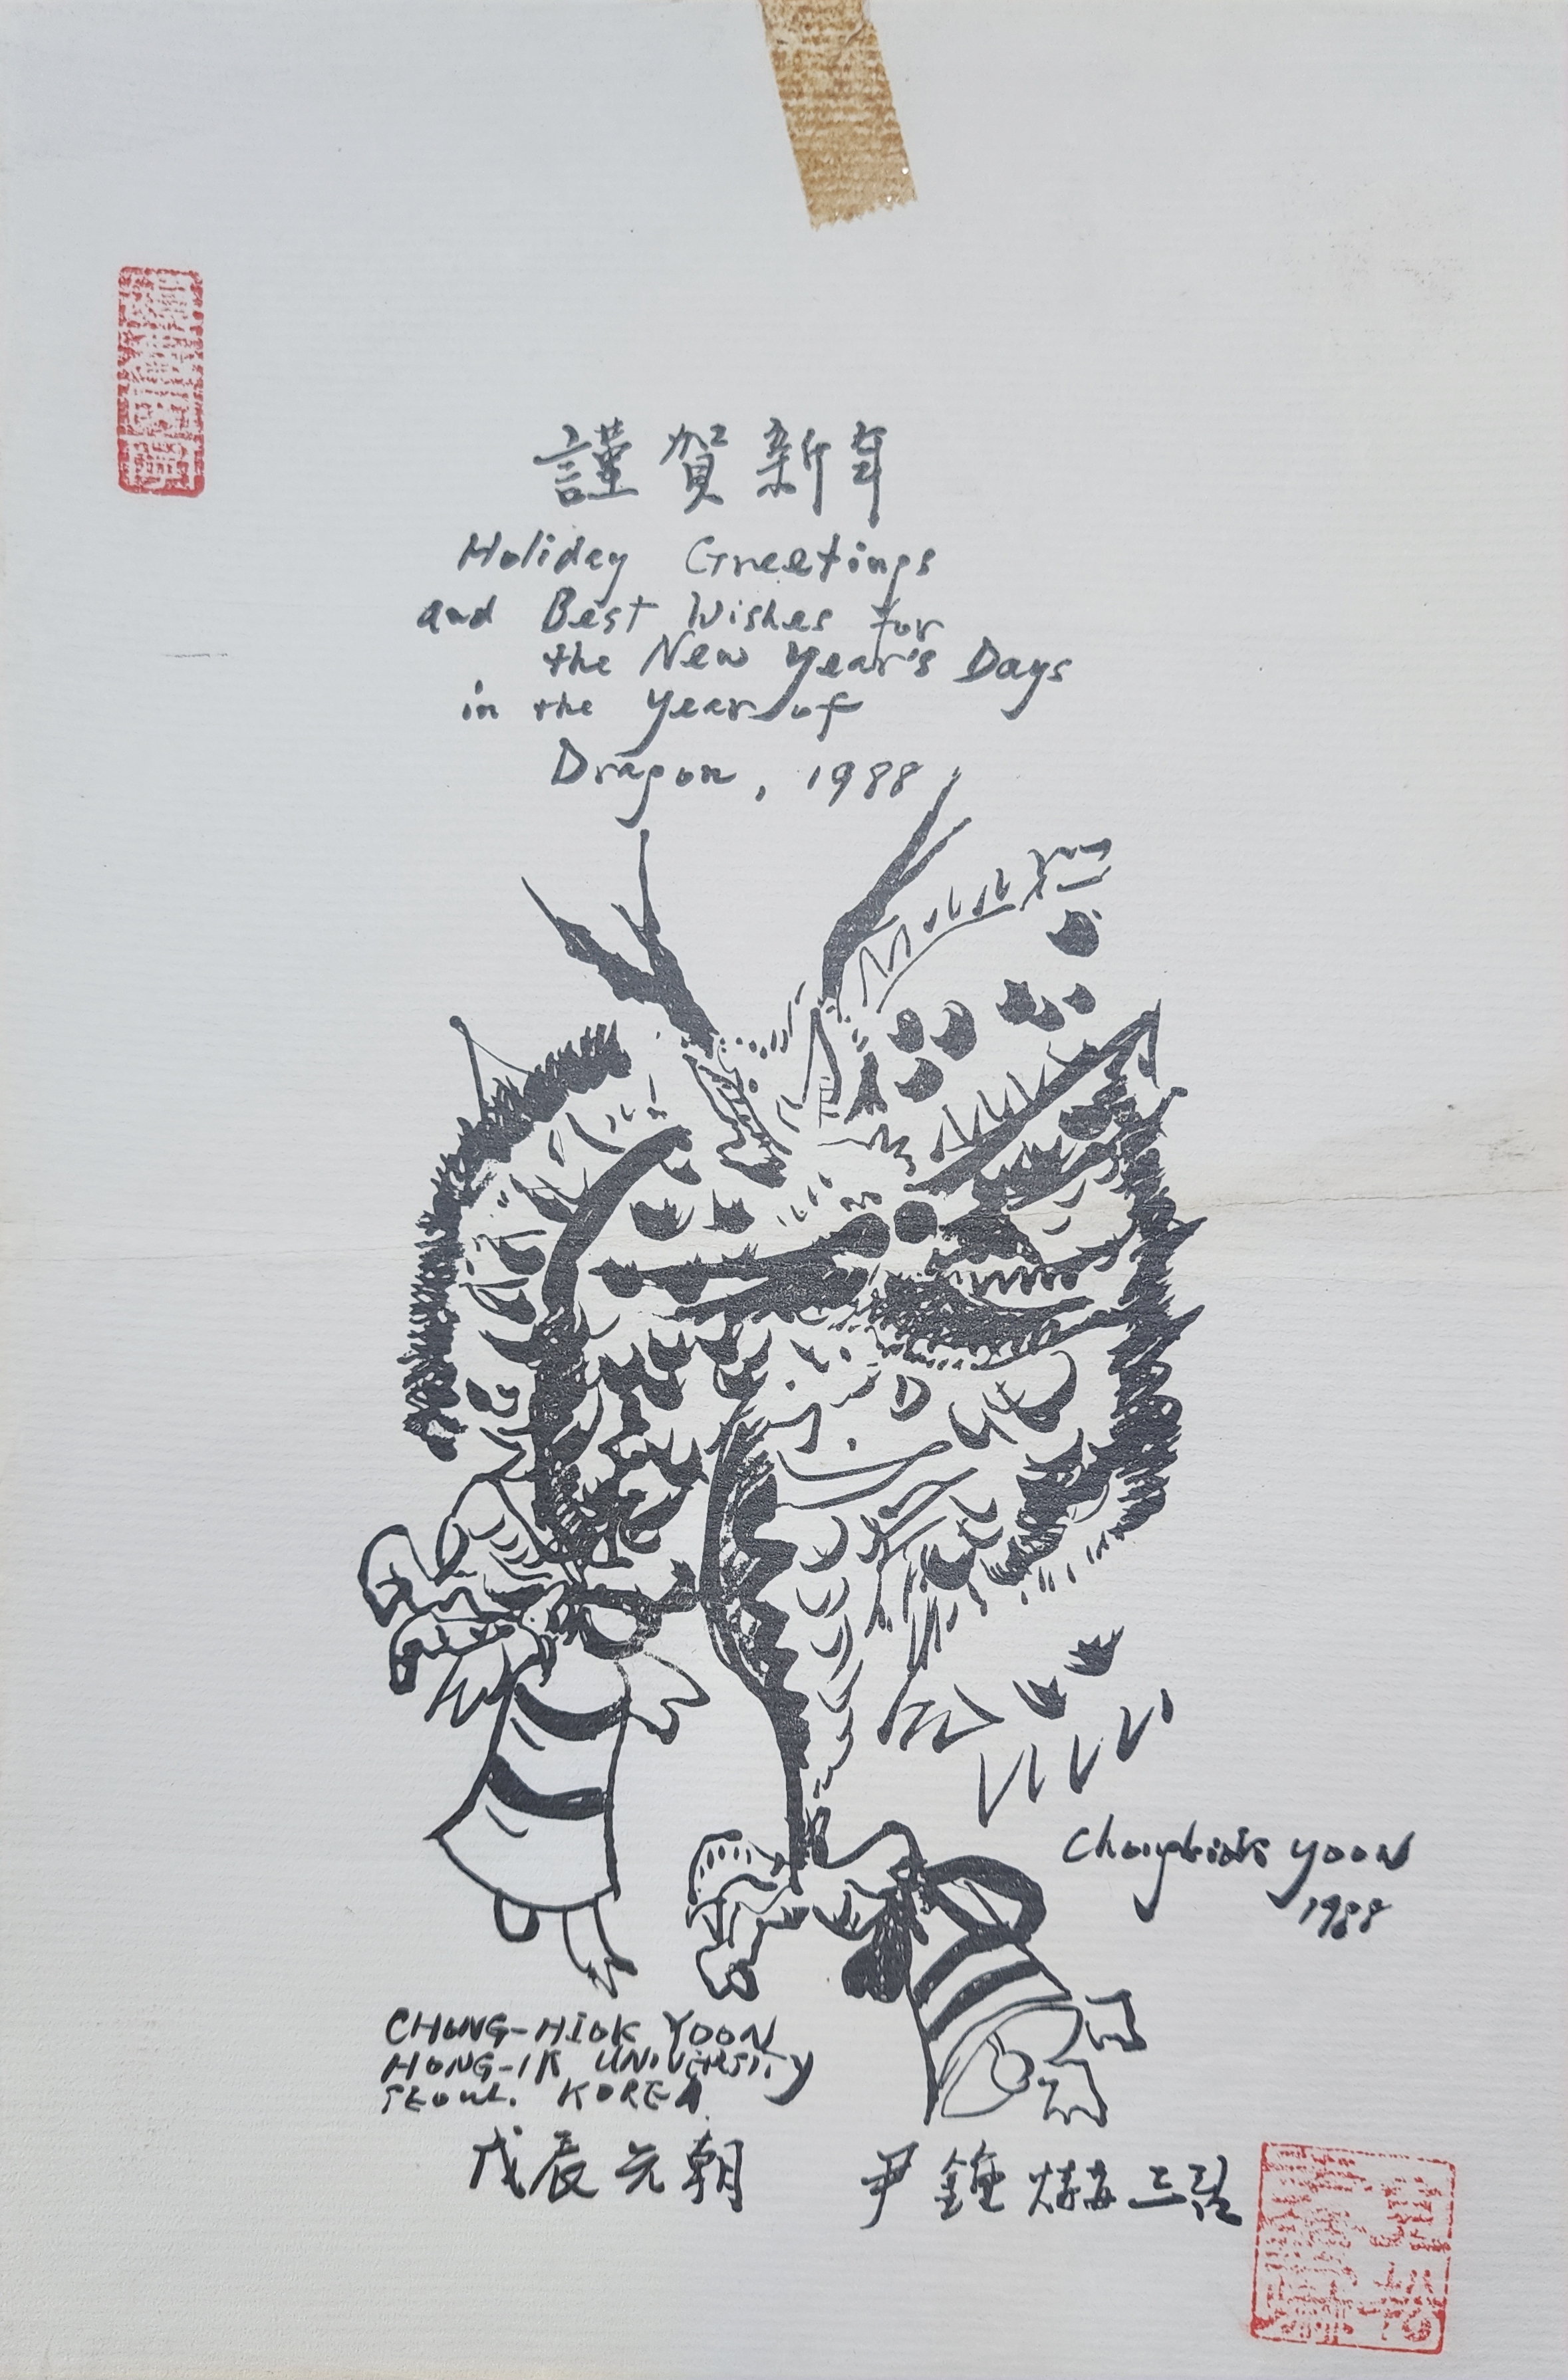 謹賀新年
Holiday Greetings
and Best Wishes for
the New Year's Days
in the year of
Dragon, 1988
Chonghiok Yoon
1988
CHONG-HIOK YOON
HONG-IK UNIVERSITY
SEOUL. KOREA
戊辰元朝
尹鍾爀